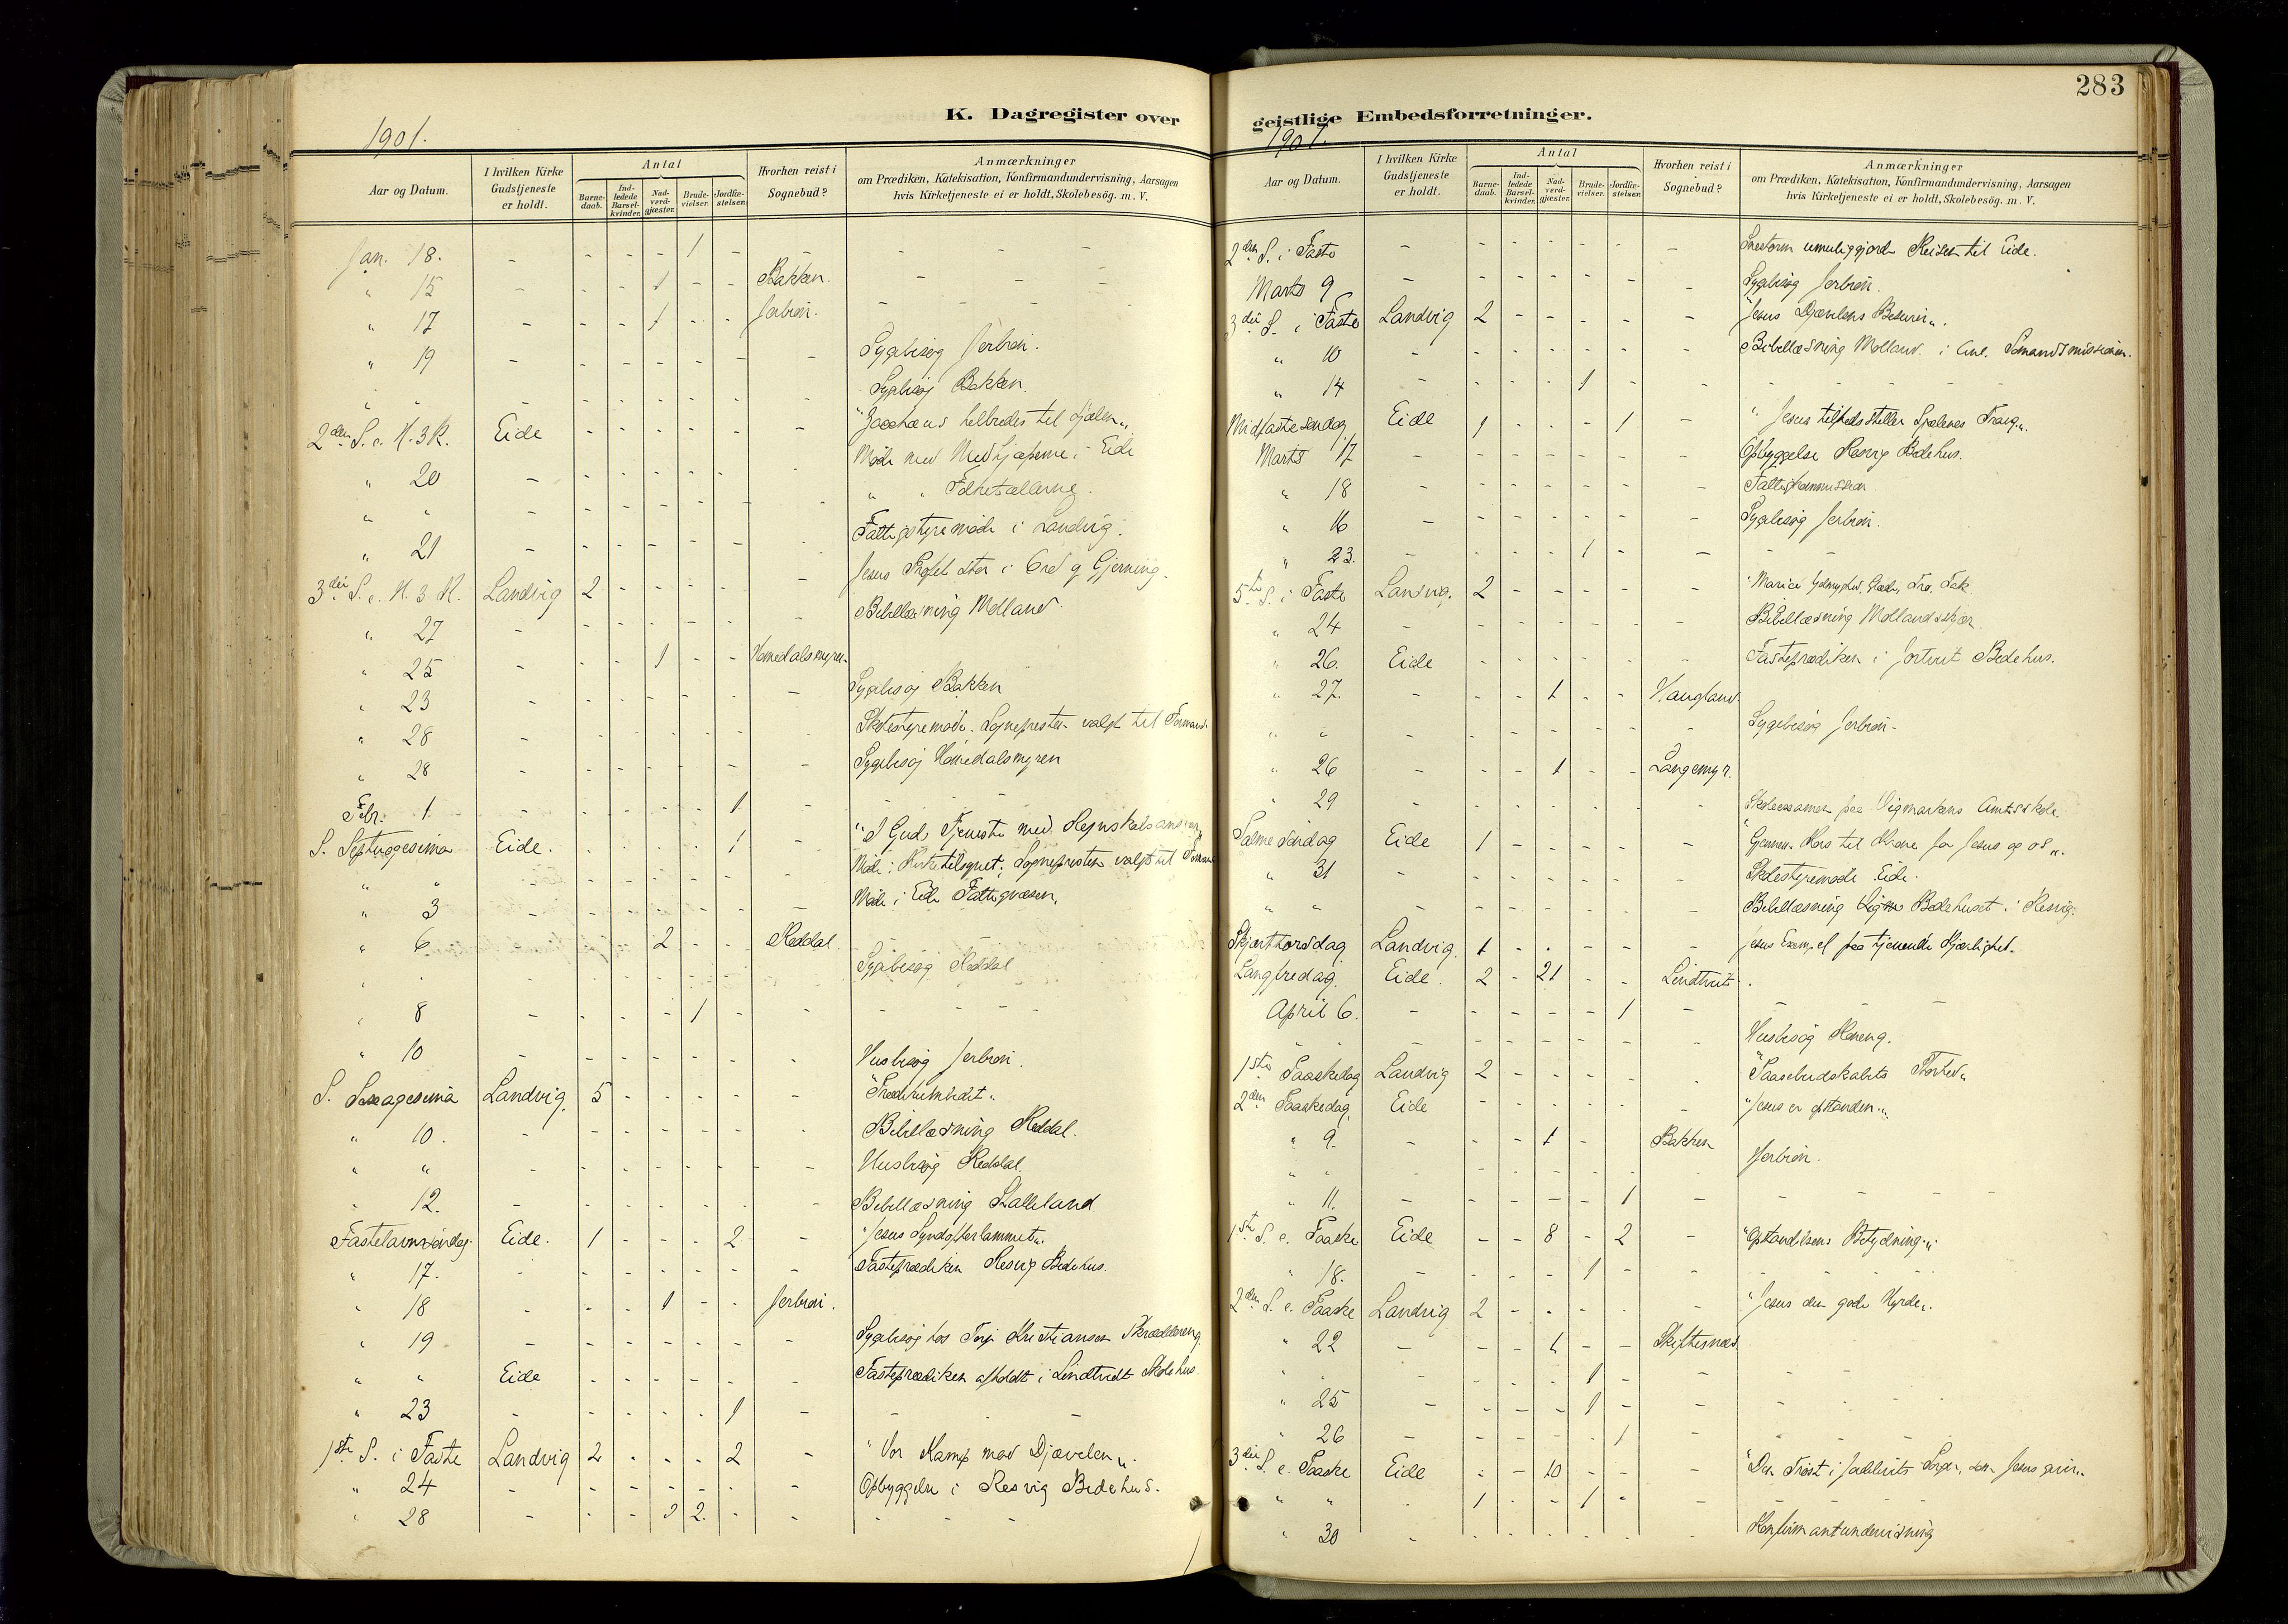 283
K. Dagregister over
geistlige Embedsforretninger.
1901.
Aar og Datum.
I hvilken Kirke Gudstjeneste er holdt.
Antal
Barnedaab.
Indledede Barselkvinder.
Nadverdgjæster.
Brudevielser.
Jordfæstelser.
Hvorhen reist i Sognebud?
Anmærkninger
om Prædiken, Katekisation, Konfirmandundervisning, Aarsagen
hvis Kirketjeneste ei er holdt, Skolebesög. m. V.
Jan. 18. - - - - 1 - - - - -
" 15 - - - 1 - - Bakken. - - -
" 17 - - - 1 - -
" 19 - - - - - - - Sygebesøg
" " - - - - - - - Sygebesøg Bakken.
2den S. e. H. 3 K. Eide - - - - - -
" 20 - - - - - - - Møde med i Eide
" " - - - - - - - " "
" 21 - - - - - - Fattigstyremøde i Landvig.
3die S. e. H. 3 K. Landvig 2 - - - - - Jesus i Ord og Gjerning.
" 27 - - - - - - - Bibellæsning Molland.
" 25 - - - 1 - - Homedalsmyren.
" 23 - - - - - - - Sygebesøg Bakken
" 28 - - - - - - Skolestyremøde. Sognepresten valgt til Formand
" 28 - - - - - - - Sygebesøg Homedalsmyren
Febr. 1 - - - - - 1 - - - -
S. Septuagesima Eide. - - - - 1 - "I Guds Tjeneste med
" " - - - - - - Møde i Kirketilsynet; Sognepresten valgt til
" 3 - - - - - - - Møde i Eide Fattigvæsen.
" 6 - - - 2 - - Reddal - -
" - - - - - - Sygebesøg Reddal
" 8 - - - - 1 - - - - -
" 10 - - - - - - - Husbesøg
S. Sexagesima Landvig. 5 - - - - - -
" 10. - - - - - - - Bibellæsning Reddal.
" " - - - - - - - Husbesøg Reddal.
" 12. - - - - - - - Bibellæsning
Fastelavnssøndag. Eide. 1 - - - - 2 - "Jesus Syndofferlammet".
" 17. - - - - - - - Fasteprædiken Resvig Bedehus.
" 18 - - - 1 - -
" 19 - - - - - - - Sygebesøg hos Kristiansen
" " Eide - - - - - - - Fasteprædiken afholdt i Lindtveit Skolehus.
" 23 - - - - - 1 - - -
1ste S. i Faste Landvig 2 - - - - 2 - "Vor Kamp med Djævelen".
" 24 - - - - - - - Opbyggelse i Resvig Bedehus.
" 28 - - - 2. - - - - -
1901.
Aar og Datum.
I hvilken Kirke Gudstjeneste er holdt.
Antal
Barnedaab.
Indledede Barselkvinder.
Nadverdgjæster.
Brudevielser.
Jordfæstelser.
Hvorhen reist i Sognebud?
Anmærkninger
om Prædiken, Katekisation, Konfirmandundervisning, Aarsagen
hvis Kirketjeneste ei er holdt, Skolebesög. m. V.
2den S. i Faste - - - - - - - Snestorm umuliggjorde Reisen til Eide.
Marts 9 - - - - - - - Sygebesøg
3die S. i Faste Landvig 2 - - - - - "Jesus Djævelens
" 10 - - - - - - - Bibellæsning Molland. i Anl. Sømandsmissionen.
" 14 - - - - 1 - - - - -
Midfastesøndag. Eide 1 - - - 1 - "Jesus tilfredsstiller Sjælenes Trang".
Marts 17 - - - - - - - Opbyggelse Resvig Bedehus.
" 18 - - - - - - - Fattigkommission
" 16 - - - - - - - Sygebesøg
" 23. - - - - 1 - - - -
5te S. i Faste Landvig. 2 - - - - - "Mariæ Ydmyghed, Glæde, Tro, Tak.
" 24 - - - - - - - Bibellæsning Mollandskjær
" 26. Eide - - - - - - - Fasteprædiken i Bedehus.
" 27. - - - 1 - - Haugland.
" " - - - - - - - Sygebesøg
" 26 - - - 1 - - Langemyr.
" 29 - - - - - - - Skoleexamen paa Amtsskole.
Palmesøndag Eide 1 - - - - - "Gjennem Kors til Krone for Jesus og os".
" 31 - - - - - - - Skolestyremøde Eide.
" " - - - - - - - Bibellæsning Bedehuset i Resvig.
Skjærthorsdag. Landvig. 1 - - - - - Jesus Exempel paa tjenende Kjærlighed.
Langfredag. Eide. 2 - 21 - - Lindtveit.
April 6. - - - - - 1 - - -
" " - - - - - - - Husbesøg
1ste Paaskedag Landvig 2 - - - - - "Paaskebudskabets
2den Paaskedag. Eide - - - - - - "Jesus er opstanden".
" 9. - - - 1 - Bakken
" " - - - - - -
" 11. - - - - - 1 - - - -
1ste S. e. Paaske Eide - - 8 - 2 - "Opstandelsens Betydning".
" 18. - - - - 1 - - - -
2den S. e. Paaske Landvig 2 - - - - - "Jesus den gode Hyrde".
" 22 - - - - - Skiftenes.
" " - - - - 1 - - -
" 25 - - - - 1 - - - -
" 26 - - - - - 1 - - -
3die S. e. Paaske Eide - - 10 - - - "Den Trøst i Sorger, som Jesus giver".
" " - 1 - - 1 - - -
" 30 - - - - - - - Konfirmantundervisning